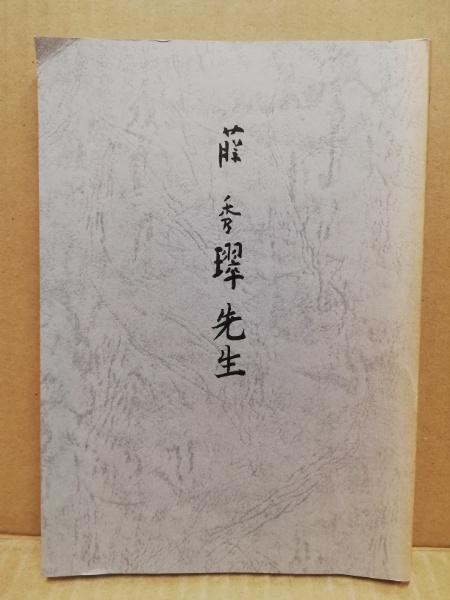 藤秀璻先生